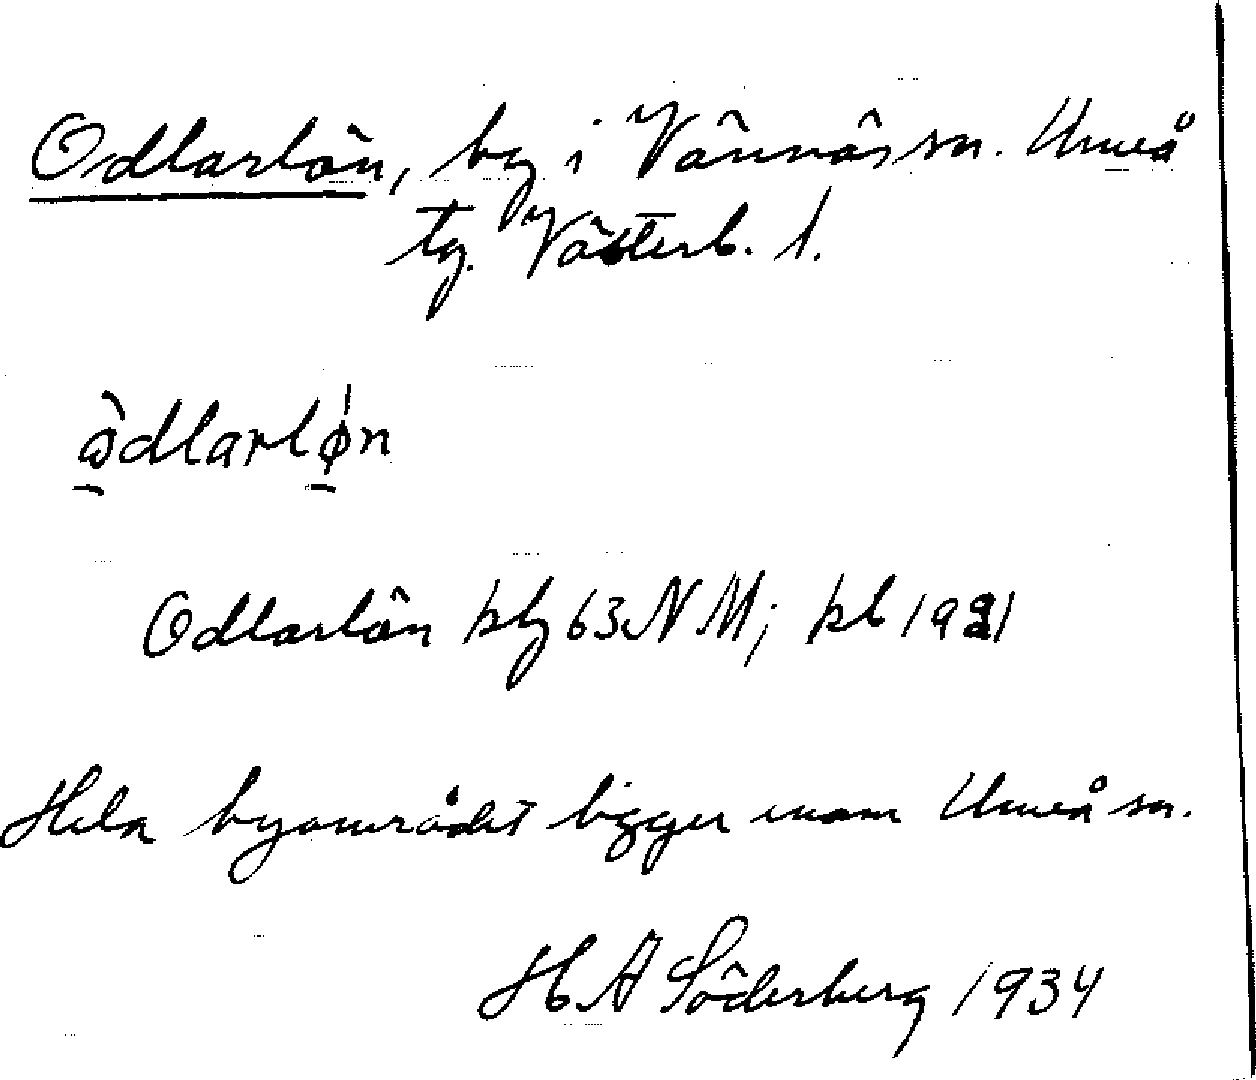 Odlarlön, by i Vännäs sn. Umeå
tg. Västerb. l.
ò̱dlarlǿ̱n
Odlarlön kbg 63 N M; kb 1921
Hela byområdet ligger inom Umeå sn.
H A Söderberg 1934